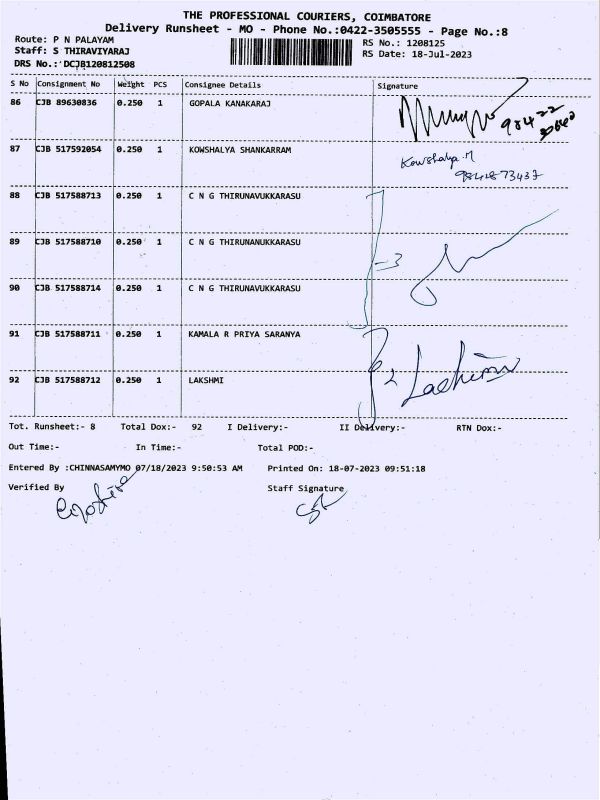 THE PROFESSIONAL COURIERS, COIMBATORE
Delivery Runsheet - MO - Phone No.:0422-3505555 - Page No.:8
Route: P N PALAYAM
RS No.: 1208125
Staff: S THIRAVIYARAJ
RS Date: 18-Jul-2023
DRS No.: DCJB120812508
S No Consignment No Weight PCS Consignee Details Signature
86 CJB 89630836 0.250 1 GOPALA KANAKARAJ
87 CJB 517592054 0.250 1 KOWSHALYA SHANKARRAM
Kowshalya.M
88 CJB 517588713 0.250 1 C N G THIRUNAVUKKARASU
89 CJB 517588710 0.250 1 C N G THIRUNANUKKARASU
-3
90 CJB 517588714 0.250 1 C N G THIRUNAVUKKARASU
91 CJB 517588711 0.250 1 KAMALA R PRIYA SARANYA
92 CJB 517588712 0.250 1 LAKSHMI
2
Tot. Runsheet:- 8 Total Dox:- 92 I Delivery:- II Delivery:- RTN Dox:-
Out Time:- In Time:- Total POD:-
Entered By :CHINNASAMYMO 07/18/2023 9:50:53 AM Printed On: 18-07-2023 09:51:18
Verified By Staff Signature